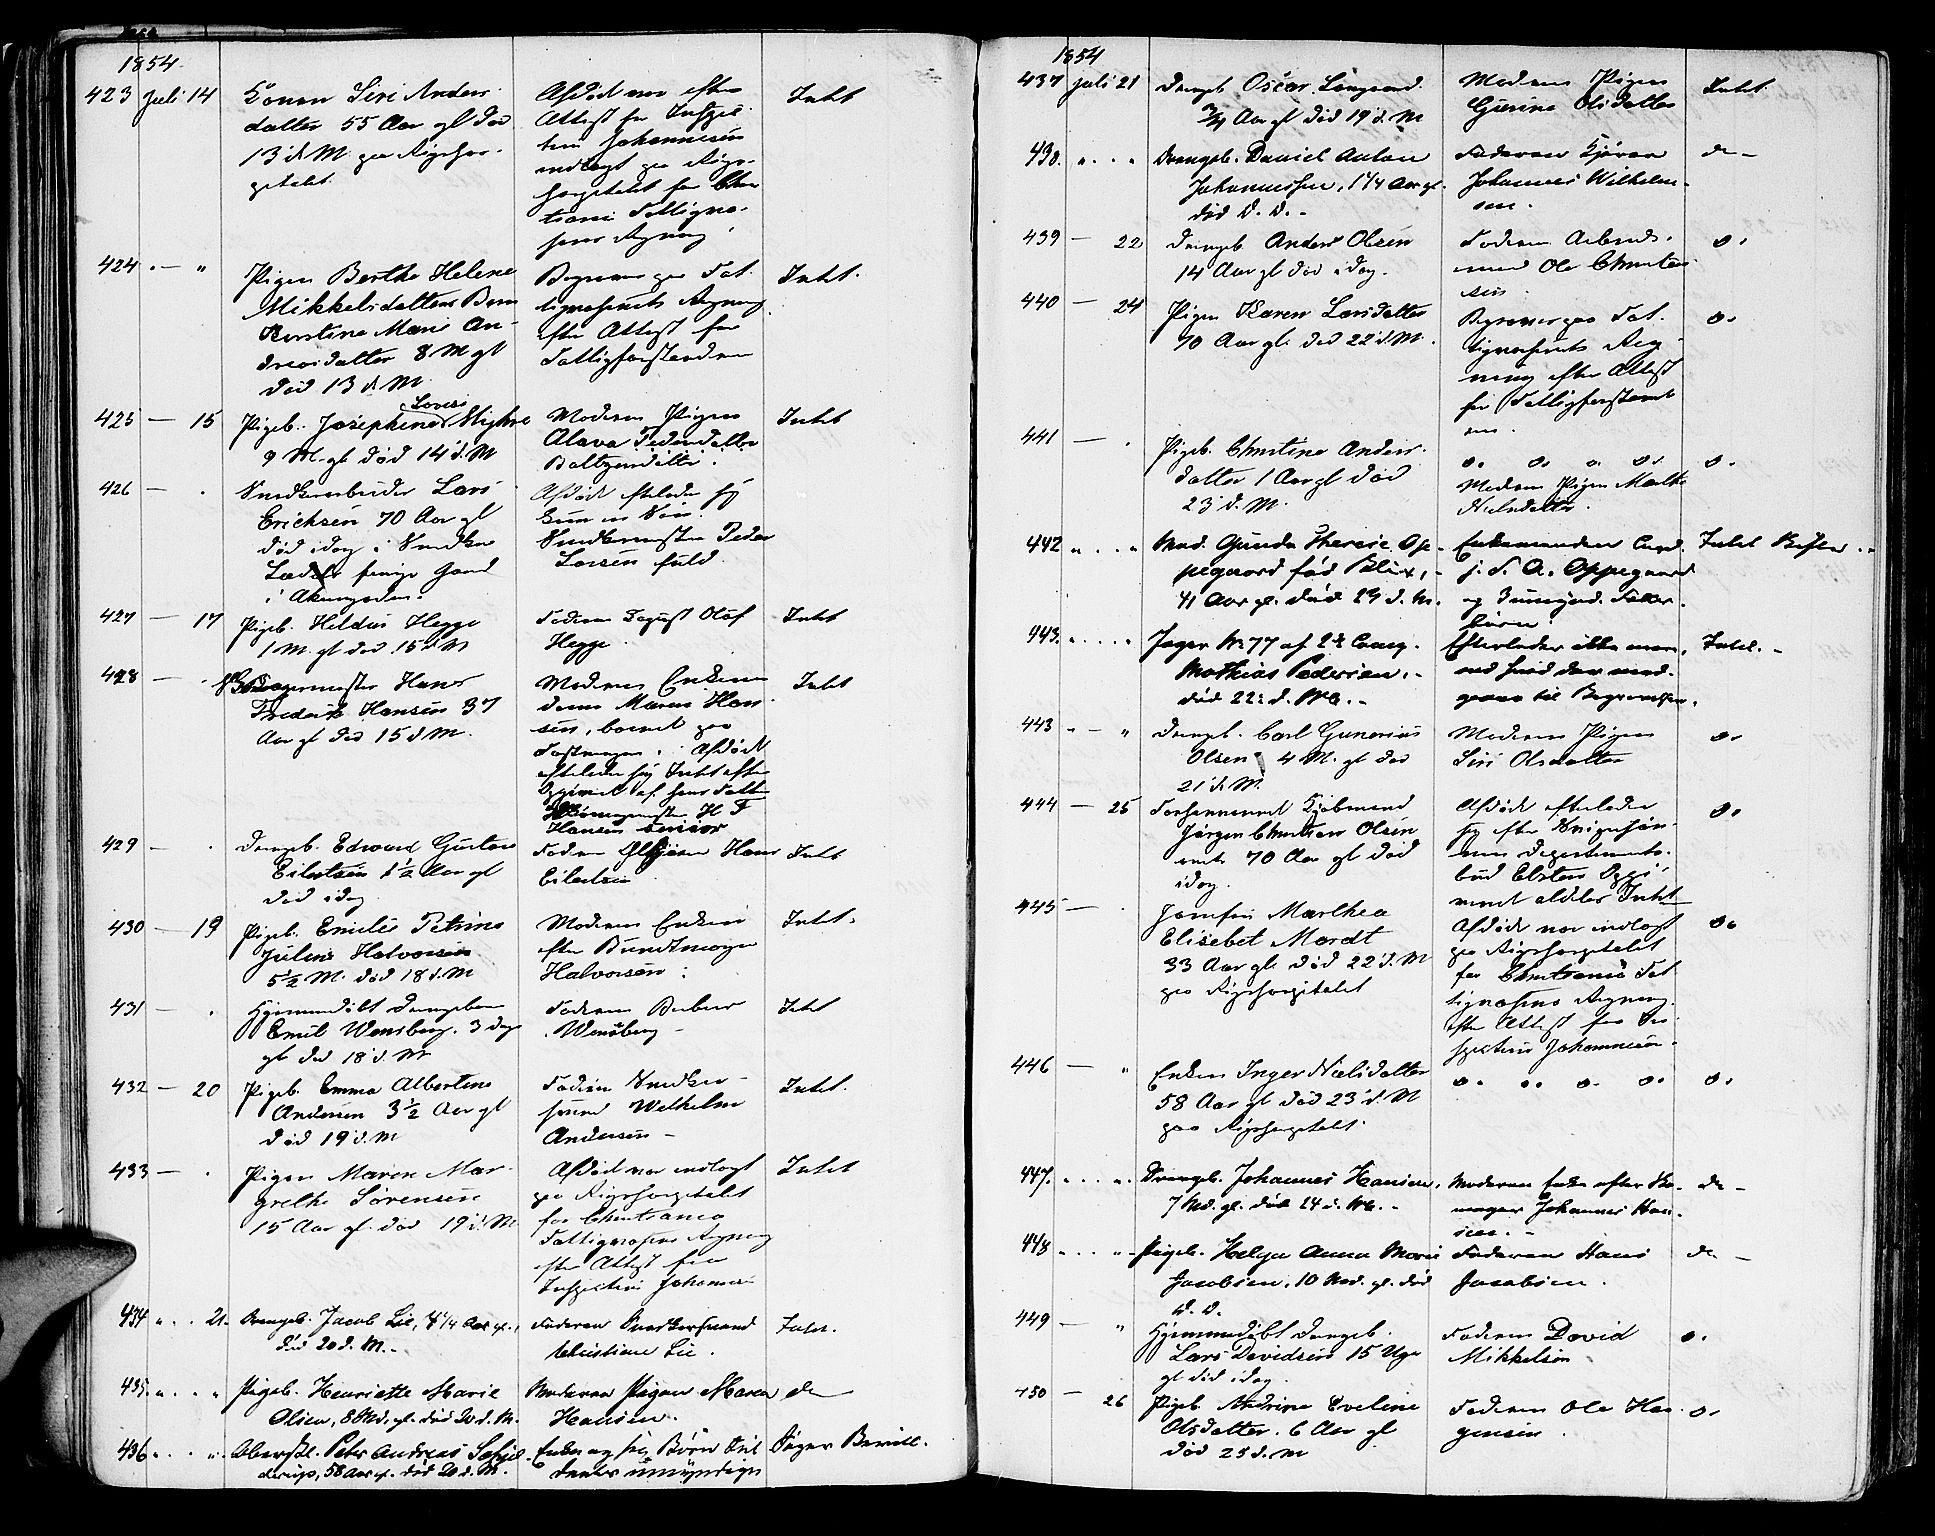 1854
423 Juli 14 Konen Siri Anders-
datter 55 Aar gl død
13 d. M. paa Rigshos-
pitalet
Afdøde var efter
Attest fra Inspec-
teur Johannesen
indlagt paa Rigs-
hospitalet for Chri-
stiania Fattigvæ-
sens Regning
Intet
424 " — " Pigen Berthe Helene
Mikkelsdatters Barn
Kirstine Marie An-
dreasdatter 8 M gl
død 13 d. M.
Begraves paa Fat-
tigvæsenets Regning
efter Attest fra
Fattigforstanderen
Intet.
425 — 15 Pigeb. Josephine Lovise
9 M. gl død 14 d. M
Moderen Pigen
Olava Pedersdatter
Intet
426 — " Snedkersvend Lars
Erichsen 70 Aar gl
død idag i Snedker
Afdøde efterlader sig
Snedkermester Peder
Larsen
427 — 17 Pigeb. Hegge
1 M. gl død 15 d. M
Faderen August Olaf
Hegge
Intet
428 — " Hans
Fredrik Hansen 37
Aar gl død 15 d. M.
Moderen Enken
Maren Han-
sen, boende paa
Fæstningen. Afdøde
efterlader sig Intet efter
Opgivende af hans Fader
H F
Hansen senior
Intet
429 — " Drengeb. Edvard Gustav
Eilertsen 1½ Aar gl
død idag
Faderen Hans
Eilertsen
Intet
430 — 19 Pigeb. Emilie Petrine
Juline Halvorsen
5½ M. død 18 d. M
Moderen Enken
efter Buntmager
Halvorsen
Intet.
431 — " Hjemmedøbt Drengebarn
Emil Wensberg. 3 Dage
gl død 18 d. M
Faderen
Wensberg —
Intet
432 — 20 Pigeb. Emma Albertine
Andersen 3½ Aar gl
død 19 d. M
Faderen Snedker-
svend Wilhelm
Andersen —
Intet.
433 — " Pigen Maren Mar-
grethe Sørensen
15 Aar gl. død 19 d. M
Afdøde var indlagt
paa Rigshospitalet
for Christiania
Fattigvæsens Regning
efter Attest fra
Inspecteur Johannesen
Intet
434 " . . 21. Drengeb. Jacob Lie, 4¼ Aar gl.,
død 20 d. M. -
Faderen Snedkersvend
Christian Lie.
Intet.
435. " . . " Pigeb. Henriette Marie
Olsen, 8 Md. gl. død 20 d. M.
Moderen Pigen Maren
Hansen.
do
436 " . . " Oberstl. Peter Andreas
58 Aar gl. død 20 d. M.
Enke og sex Børn
umyndige
Søger Bevill.
1854
437 Juli 21 Drengeb Oscar
¾ Aar gl død 19 d. M
Moderen Pigen
Gurine Olsdatter
Intet
438. " . . " Drengeb. Daniel Anton
Johannessen, 1¼ Aar gl.
død D. D. -
Faderen Kjører
Johannes Wilhelm-
sen.
do -
439 — 22 Drengeb Anders Olsen
14 Aar gl død idag.
Faderen Arbeids-
mand Ole Christen-
sen
do.
440 — 24 Pigen Karen Larsdatter
70 Aar gl. død 22 d. M.
Begraves paa Fat-
tigvæsenets Reg-
ning efter Attest
fra Fattigforstand-
eren
do.
441 — " Pigeb. Christine Anders-
datter 1 Aar gl død
23 d. M.
do. do. do. do.
Moderen Pigen Marthe
Nielsdatter.
do.
442 " . . " Mad. Gunda Therese Op-
pegaard født Blix, -
41 Aar gl. død 23 d. M.
Enkemanden
J. F. A. Oppegaard
og 3 umynd. Fæller-
børn.
Intet Skifte. -
443. " . . " Jæger No 77 af 2d Comp.
Mathias Pedersen. -
død 22 d. M. -
Efterlader ikke mere
end hvad der med-
gaar til Begravelsen.
Intet. -
443 " — " Drengeb. Carl Gunerius
Olsen 4 M. gl død
21 d. M.
Moderen Pigen
Siri Olsdatter
do.
444 — 25 Forhenværende Kjøbmand
Jørgen Christian Olsen
70 Aar gl død
idag.
Afdøde efterlader
sig efter
Departements-
bud Elstens Opgi-
vende aldeles Intet
do.
445 — " Jomfru Marthea
Elisebet Mardt
33 Aar gl. død 22 d. M
paa Rigshospitalet
Afdøde var indlagt
paa Rigshospitalet
for Christiania Fat-
tigvæsens Regning.
efter Attest fra In-
specteur Johannesen.
do.
446 — " Enken Inger Nielsdatter
58 Aar gl død 23 d. M
paa Rigshospitalet.
do. do. do. do. do.
447. " . . ". Drengeb. Johannes Hansen,
7 Md. gl. død 24 d. M. -
Moderen Enke efter Sko-
mager Johannes Han-
sen. -
do -
448 " . . " - Pigeb. Helga Anna Marie
Jacobsen, 10 Md. gl. død
D. D.
Faderen Hans
Jacobsen.
do -
449 — " Hjemmedøbt Drengeb.
Lars Davidsen 15 Uger
gl død idag.
Faderen David
Mikkelsen
do.
450 — 26 Pigeb. Andrine Eveline
Olsdatter. 6 Aar gl
død 25 d. M
Faderen Ole Han-
sen.
do.